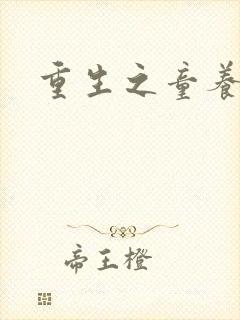 重生之童养
帝王橙